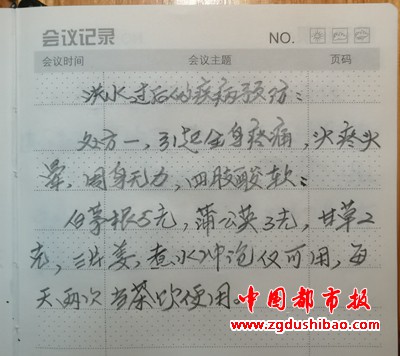 会议记录 NO.
会议时间 会议主题 页码
洪水过后的疾病预防:
处方一,引起全身疼痛,头疼头
晕,周身无力,四肢酸软:
白茅根5克,蒲公英3克,甘草2
克,三片姜,煮水冲泡仅可用,每
天两次当茶饮使用。
中国都市报
www.zgdushibao.com